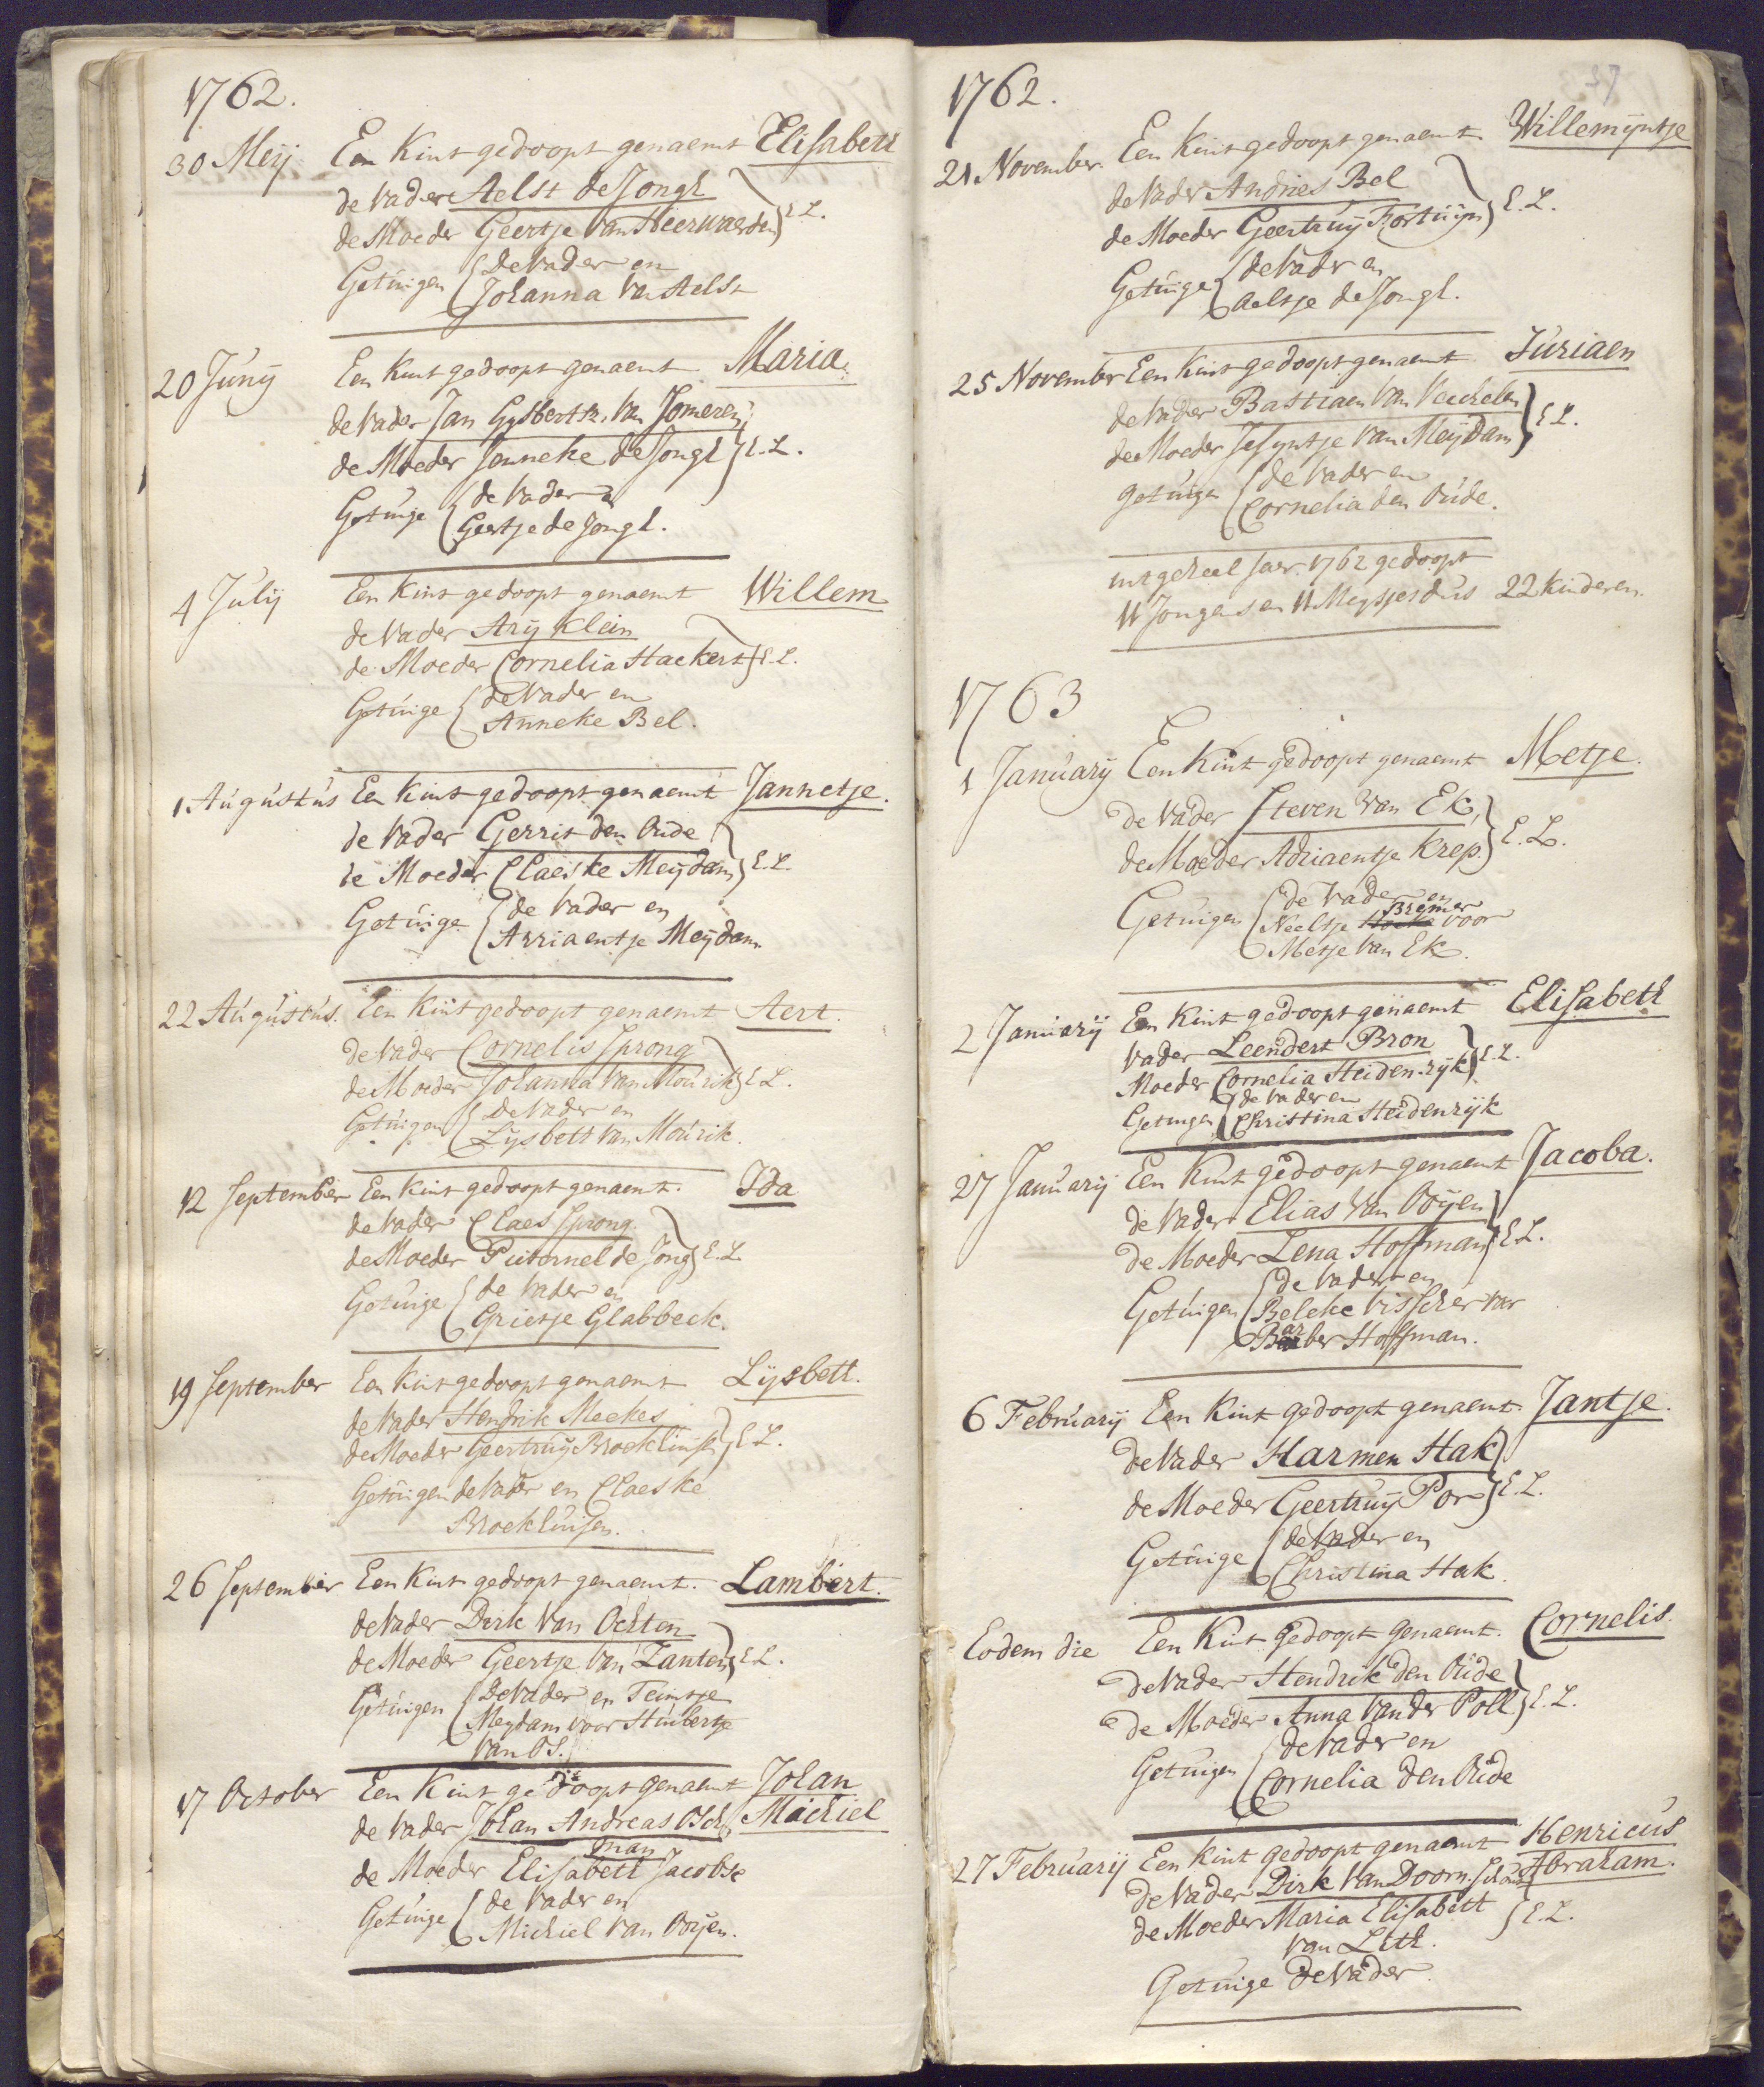 1762.
30 Meij Een Kint gedoopt genaemt Elisabeth
de Vader Aelst de Jongh
de Moeder Geertje van Heerwaerden } E. L.
Getuigen { De Vader en
Johanna van Aelst
20 Junij Een Kint gedoopt genaemt Maria.
de Vader Jan Gysbertsz. van Someren
de Moeder Jenneke de Jongh } E. L.
Getuige { de Vader en
Geertje de Jongh.
4 Julij Een Kint gedoopt genaemt Willem
de Vader Arij Klein
de Moeder Cornelia Hackert } E. L.
Getuige { de Vader en
Anneke Bel.
1. Augustus Een Kint gedoopt genaemt Jannetje.
de Vader Gerrit den Oude
de Moeder Claeske Meijdam } E. L.
Getuige { de Vader en
Arriaentje Meijdam
22 Augustus. Een Kint gedoopt genaemt Aert.
de Vader Cornelis Sprong
de Moeder Johanna van Mourik } E. L.
Getuigen { De Vader en
Lijsbeth van Mourik.
12 September Een Kint gedoopt genaemt. Ida
de Vader Claes Sprong.
de Moeder Pieternel de Jong } E. L.
Getuige { de Vader en
Grietje Glabbeck.
19 September Een Kint gedoopt genaemt Lijsbeth.
de Vader Hendrik Meekes
de Moeder Geertruij Broekhuijse } E. L.
Getuigen de Vader en Claeske
Broekhuisen.
26 September Een Kint gedoopt genaemt. Lambert.
de Vader Derk van Ochten
de Moeder Geertje van Zanten } E. L.
Getuigen { De Vader en Teuntje
Meydam voor Huibertje
van Os.
17 October Een Kint gedoopt genaemt Johan
de Vader Johan Andreas Osch, Machiel
man
de Moeder Elisabeth Jacobse
Getuige { de Vader en
Michiel van Ooijen.
1762.
37
21 November. Een Kint gedoopt genaemt Willemijntje
de Vader Andries Bel
de Moeder Geertruij Fortuijn } E. L.
Getuige { de Vader en
Aeltje de Jongh.
25 November Een Kint gedoopt genaemt Juriaen
de Vader Bastiaen van Veuchelen
de Moeder Jesyntje van Meijdam } E. L.
getuigen { de Vader en
Cornelia den Oude.
int geheel Jaer 1762 gedoopt
11 Jongens en 11 Meysjes dus 22 kinderen.
1763
1 Januarij Een Kint gedoopt genaemt Metje.
de Vader Steven van Ek,
de Moeder Adriaentje Krep. } E. L.
Getuigen { de Vader en
Bremer
Neeltje voor
Metje van Ek.
2 Januarij Een Kint gedoopt genaemt Elisabeth
Vader Leendert Bron
Moeder Cornelia Heidenrijk } E. L.
Getuigen { de Vader en
Christina Heidenrijk
27 Januarij Een Kint gedoopt genaemt Jacoba.
de Vader Elias van Ooijen
de Moeder Lena Hoffman } E. L.
Getuigen { de Vader en
Beleke Visscher voor
Barber Hoffman.
6 Februarij Een Kint gedoopt genaemt. Jantje.
de Vader Harmen Hak
de Moeder Geertruij Por } E. L.
Getuige { de Vader en
Christina Hak.
Eodem die Een Kint gedoopt genaemt. Cornelis.
de Vader Hendrik den Oude
de Moeder Anna van der Poll } E. L.
Getuigen { de Vader en
Cornelia den Oude
27 Februarij Een Kint gedoopt genaemt Henricus
de Vader Dirk van Doorn. Schout Abraham.
de Moeder Maria Elisabeth } E. L.
van Leth.
Getuige de Vader.